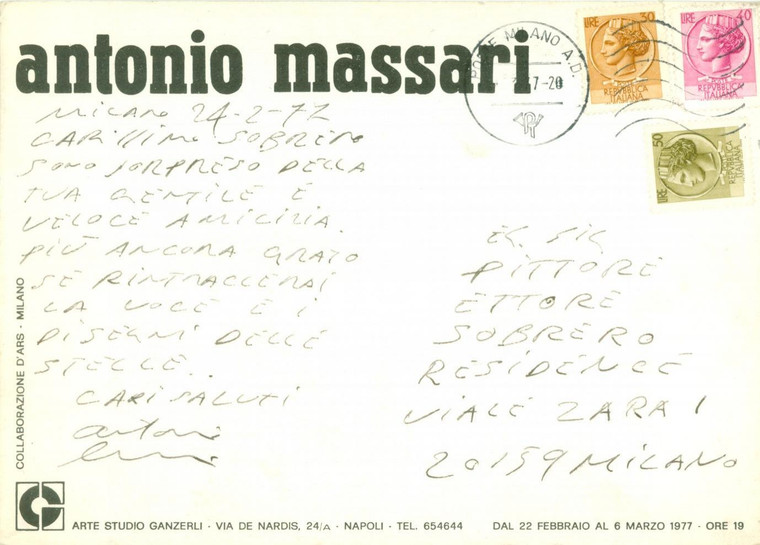 antonio massari
POSTE MILANO A.D.
LIRE 30
REPVBBLICA
ITALIANA
LIRE 40
REPVBBLICA
ITALIANA
LIRE 50
REPVBBLICA
ITALIANA
MILANO 24-2-77
CARISSIMO SOBRERO
SONO SORPRESO DELLA
TUA GENTILE E
VELOCE AMICIZIA.
PIÙ ANCORA GRATO
SE RINTRACCERAI
LA VOCE E I
DISEGNI DELLE
STELLE.
CARI SALUTI
antonio
EG. SIG
PITTORE
ETTORE
SOBRERO
RESIDENCE
VIALE ZARA 1
20159 MILANO
COLLABORAZIONE D'ARS · MILANO
ARTE STUDIO GANZERLI · VIA DE NARDIS, 24/A · NAPOLI · TEL. 654644 DAL 22 FEBBRAIO AL 6 MARZO 1977 · ORE 19